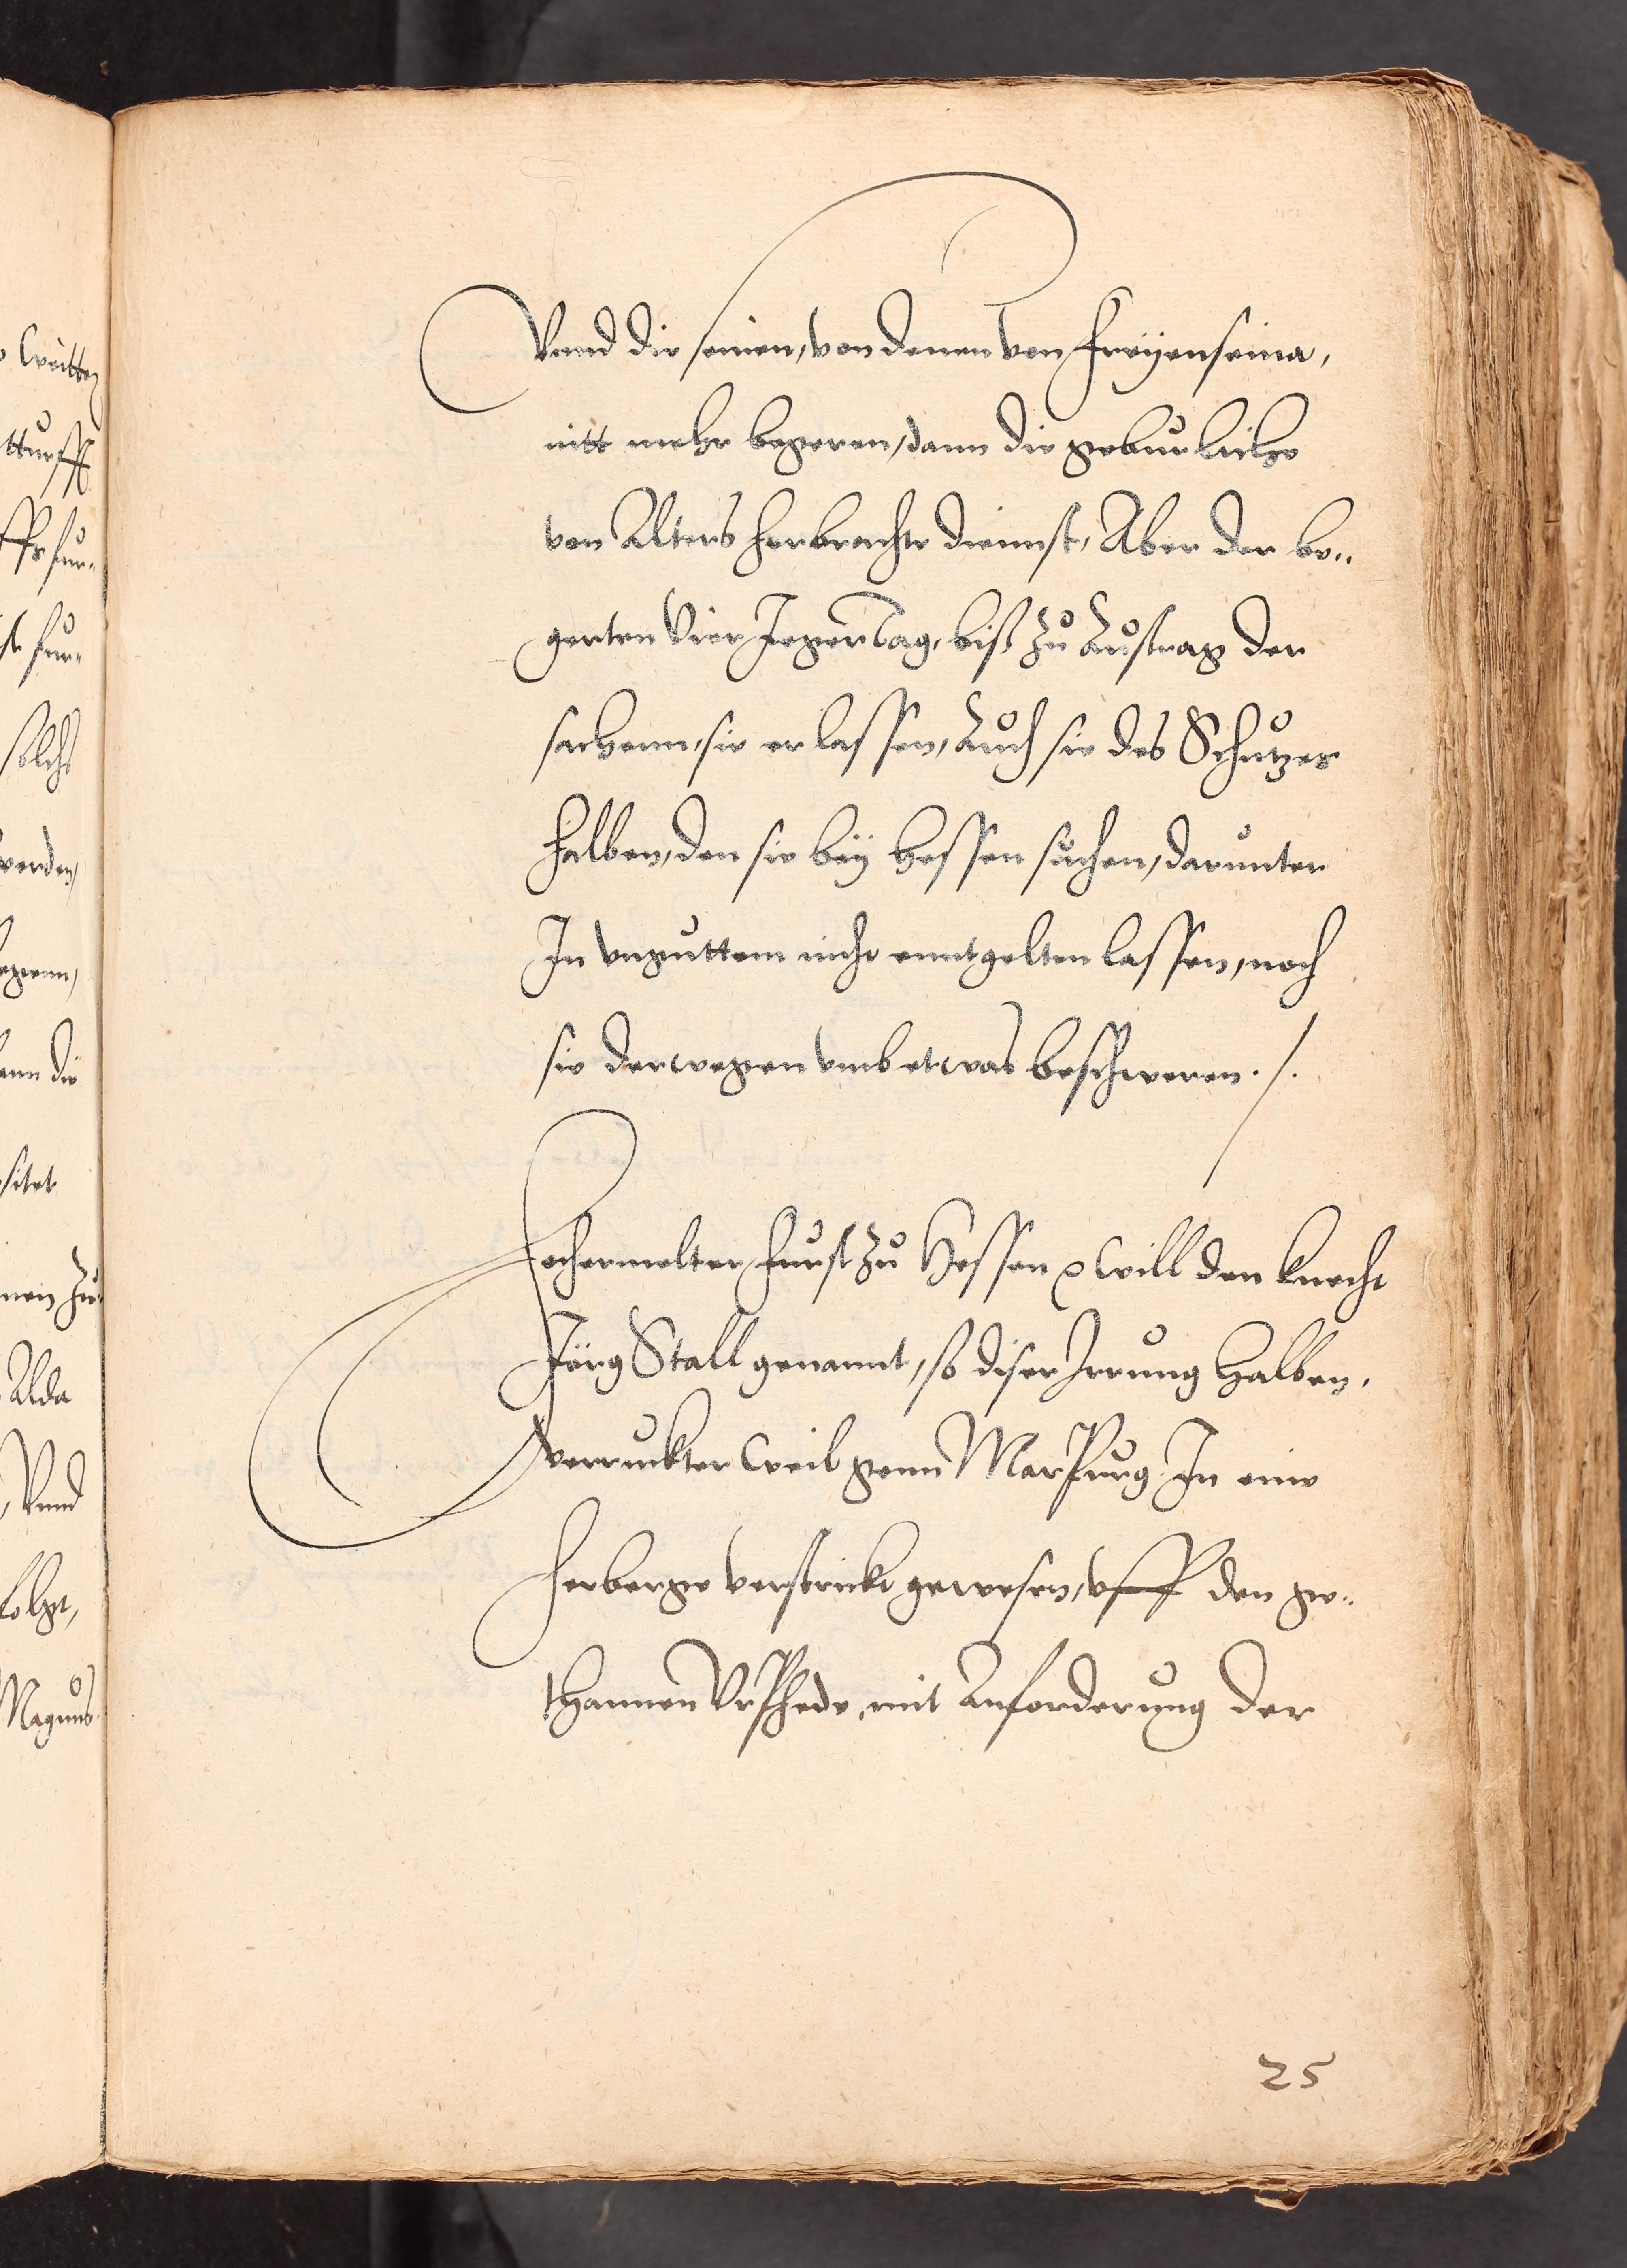 Vnnd die seinen, von denen von Freyenseina,
nitt mehr begeren, dann die geburliche
von Alters herbrachte diennst, Aber der be„
gerten Vier Jeger Tag, biß zu Austrag der
sachenn, sie erlassen, Auch sie des Schutzes
halben, den sie bey Hessen suchen, darunter
In vnguttem nicht enntgelten lassen, noch
sie derwegen vmb etwas beschweren ./.
Hochermelter Furst zu Hessen will den knecht
Jörg Stall genannt, so diser Irrung halben,
verruckter weil genn Marpurg In eine
herberge verstrickt gewesen, vff den ge„
thannen Vrphede, mit Anforderung der
25
witten
solchs
werden,
ann die
Alda
Vnnd
folgt,
Magnus